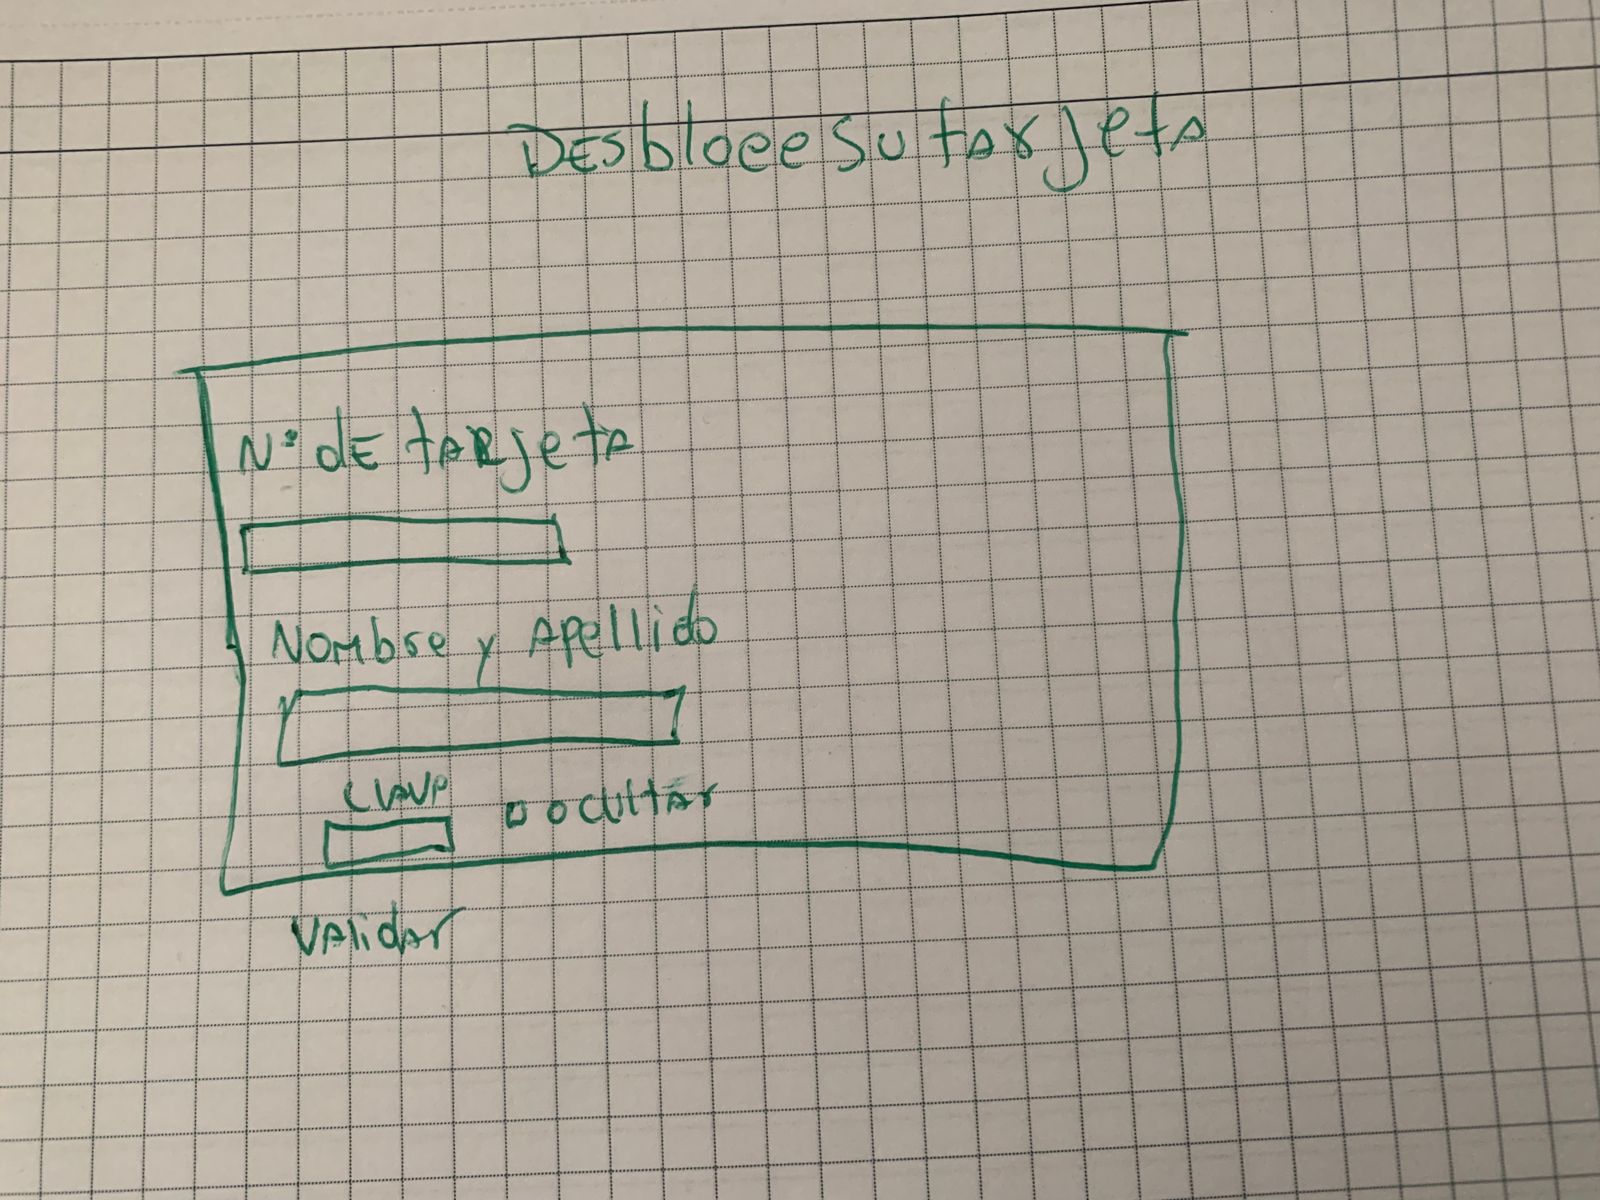 Desbloee su tarjeta
N° de tarjeta
Nombre y Apellido
clave
ocultar
validar